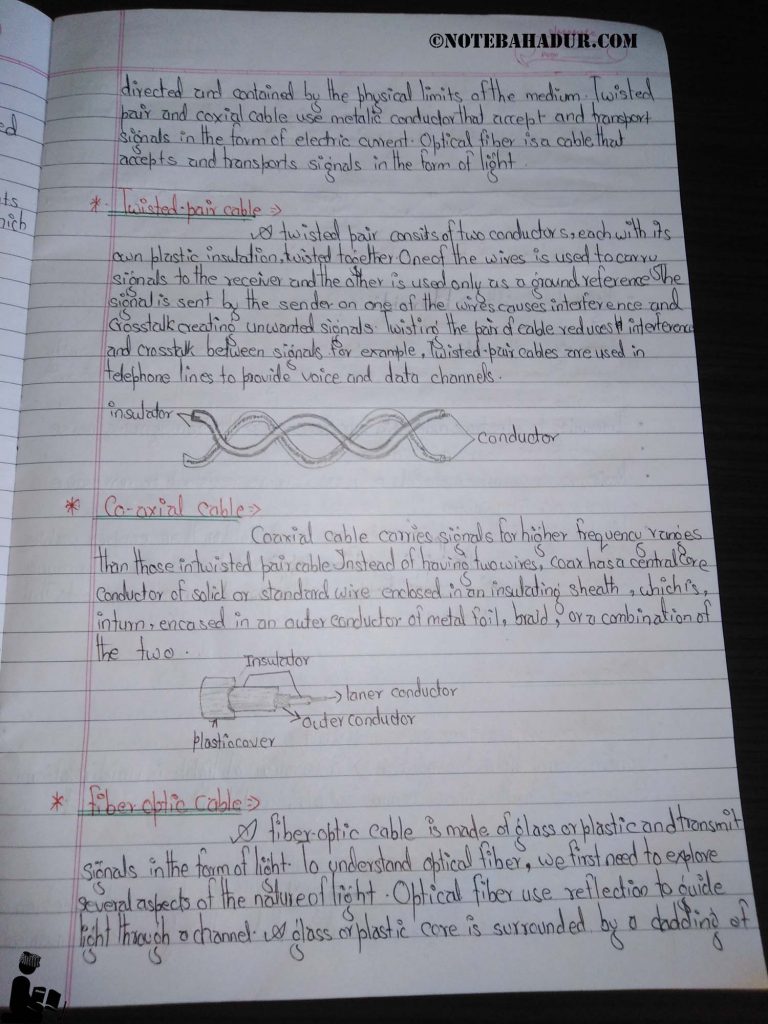 ©NOTEBAHADUR.COM
directed and contained by the physical limits of the medium. Twisted
pair and coxial cable use metalic conductor that accept and transport
signals in the form of electric current. Optical fiber is a cable that
accepts and transports signals in the form of light.
* Twisted-pair cable ⇒
A twisted pair consits of two conductors, each with its
own plastic insulation, twisted together One of the wires is used to carry
signals to the receiver and the other is used only as a ground reference The
signal is sent by the sender on one of the wires causes interference and
crosstalk creating unwanted signals. Twisting the pair of cable reduces interference
and crosstalk between signals for example, Twisted-pair cables are used in
telephone lines to provide voice and data channels.
insulator
conductor
* Co-axial cable ⇒
Coaxial cable carries signals for higher frequency ranges
than those in twisted pair cable Instead of having two wires, coax has a central core
conductor of solid or standard wire enclosed in an insulating sheath, which is,
inturn, encased in an outer conductor of metal foil, braid, or a combination of
the two.
Insulator
Iner conductor
outer conductor
plastic cover
* fiber optic cable ⇒
A fiber-optic cable is made of glass or plastic and transmit
signals in the form of light. To understand optical fiber, we first need to explore
several aspects of the nature of light. Optical fiber use reflection to guide
light through a channel. A glass or plastic core is surrounded by a cladding of